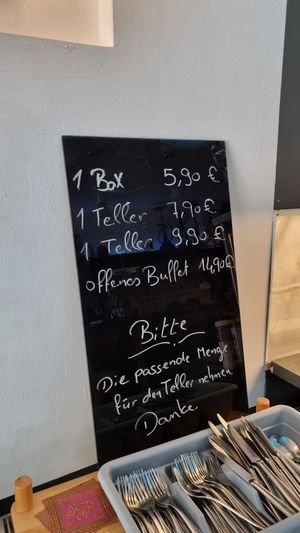 1 Box 5,90 €
1 Teller 7,90 €
1 Teller 9,90 €
offenes Buffet 14,90 €
Bitte
Die passende Menge
für den Teller nehmen
Danke.